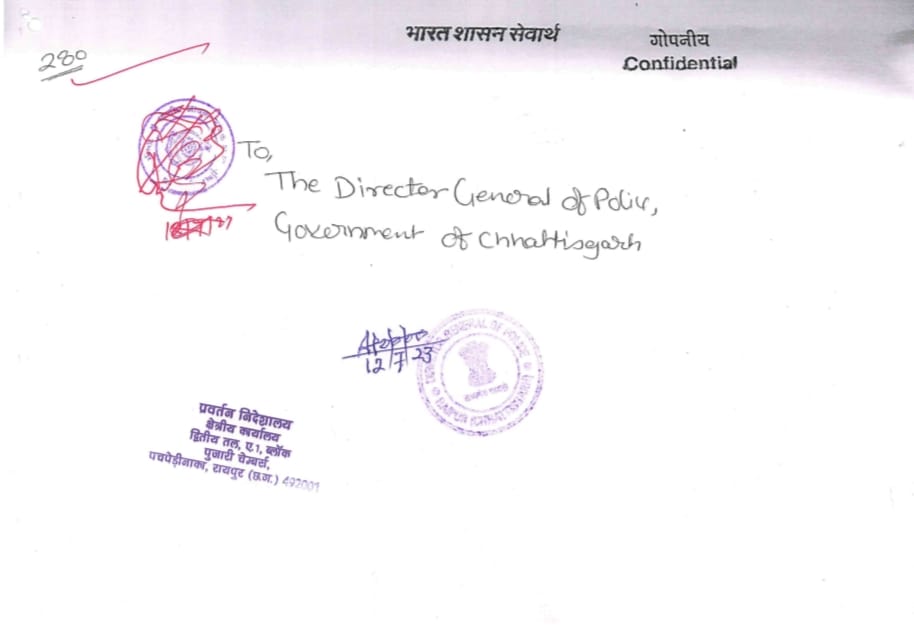 भारत शासन सेवार्थ
गोपनीय
Confidential
280
To,
The Director General of Police,
Government of Chhattisgarh
12/7/23
GENERAL OF POLICE
RAIPUR (CHHATTISGARH)
प्रवर्तन निदेशालय
क्षेत्रीय कार्यालय
द्वितीय तल, ए.1, ब्लॉक
पुजारी चेम्बर्स,
पचपेड़ीनाका, रायपुर (छ.ग.) 492001